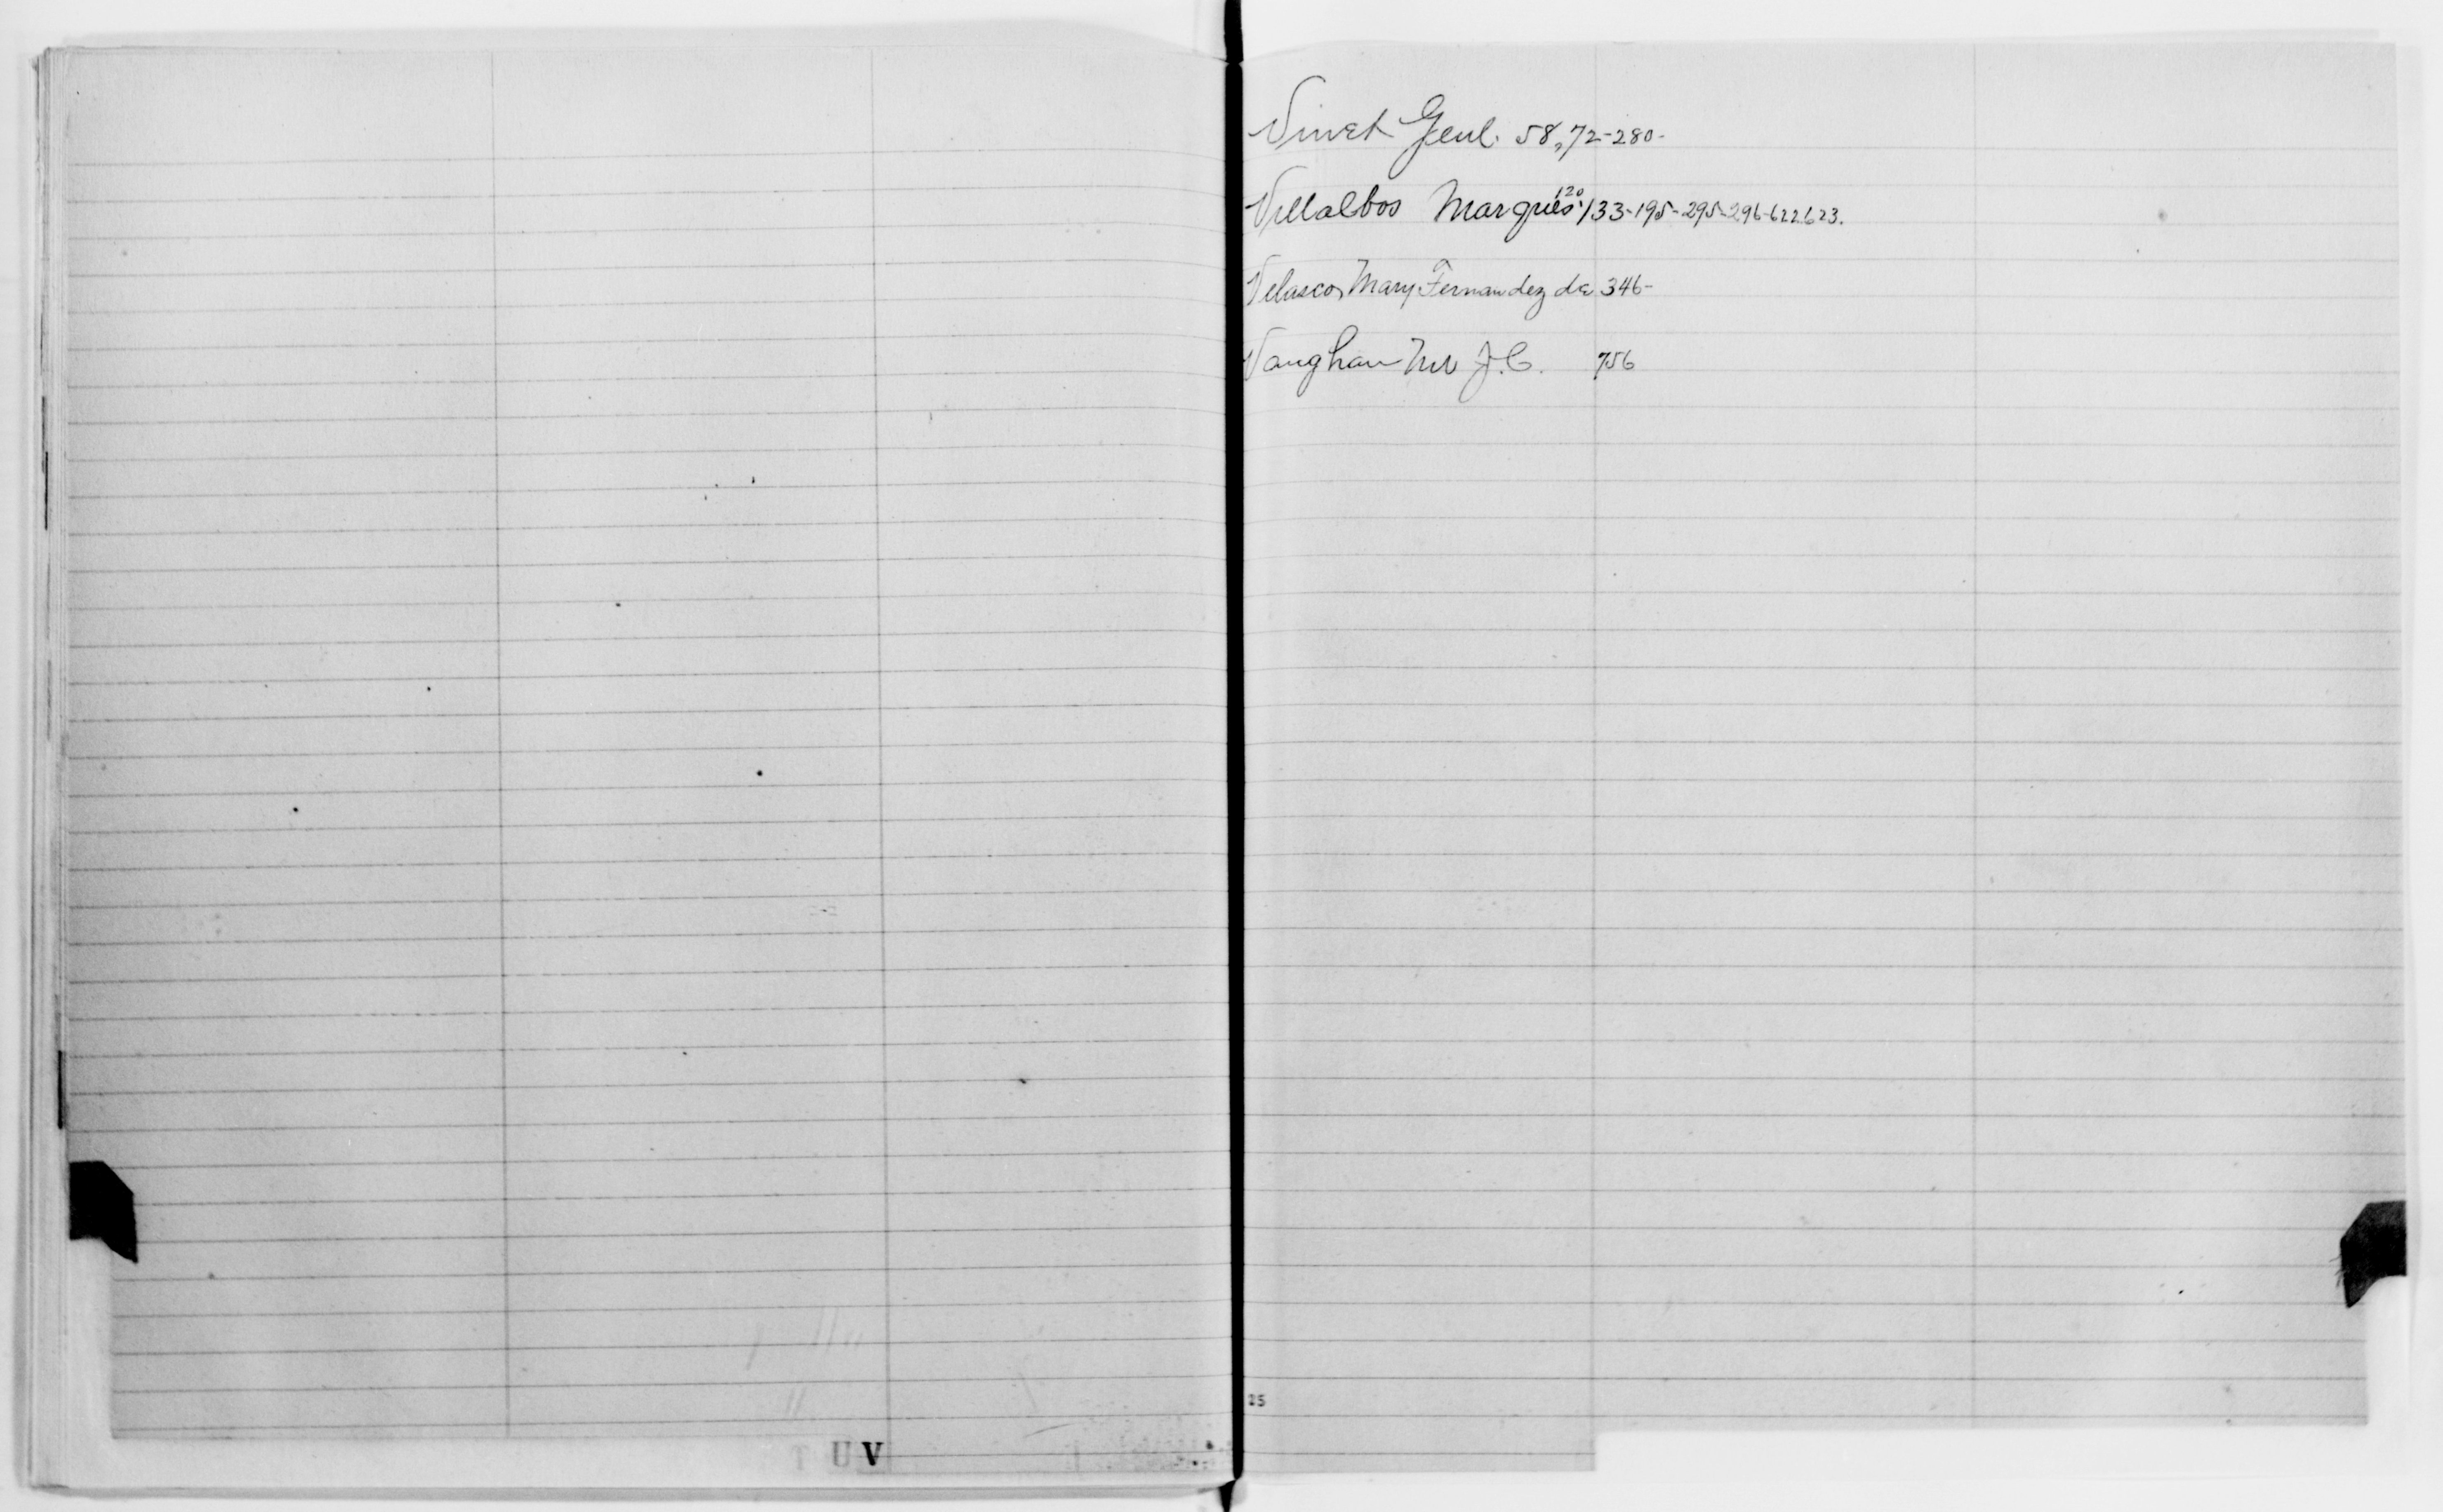 Vinet Genl. 58,72-280-
Villalbos Marques 120 133-195-295-296-622623.
Velasco, Mary Fernandez de 346-
Vaughan Mr J.C. 756
25
T U V